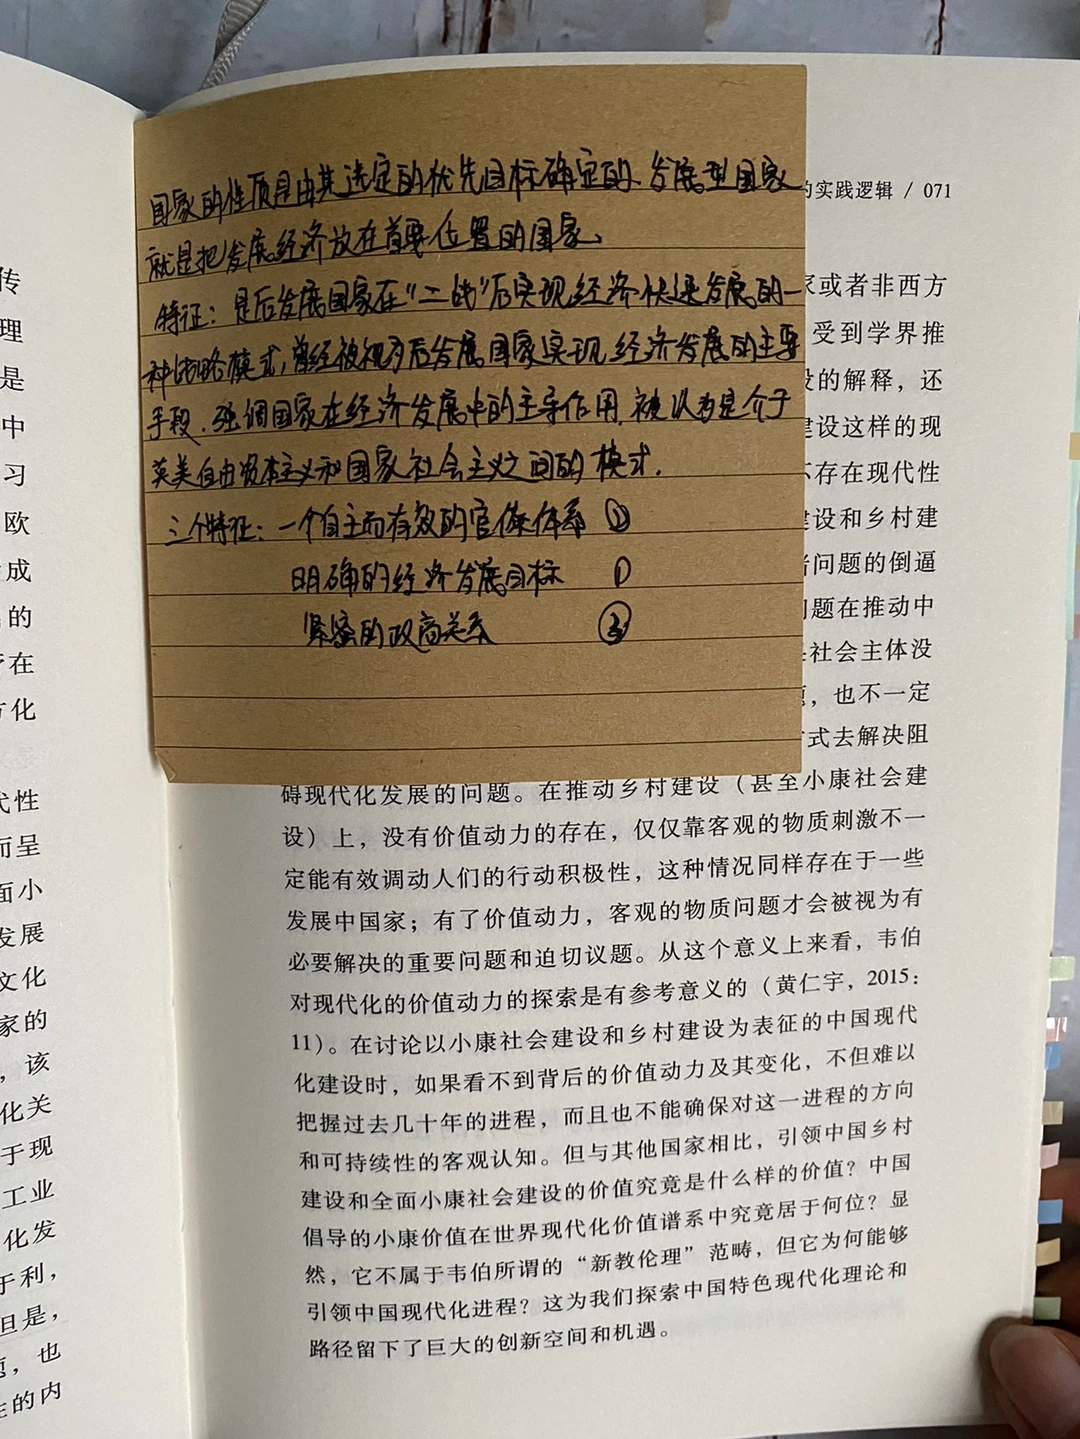 传
理
是
中
习
欧
成
的
在
化
代性
而呈
面小
发展
文化
家的
，该
化关
于现
工业
化发
于利，
但是，
，也
性的内
国家的性质是由其选定的优先目标确定的、发展型国家
就是把发展经济放在首要位置的国家。
特征：是后发展国家在“二战”后实现经济快速发展的一
种战略模式，曾经被视为后发展国家实现经济发展的主要
手段、强调国家在经济发展中的主导作用，被认为是介于
英美自由资本主义和国家社会主义之间的模式.
三个特征：一个自主而有效的官僚体系 ②
明确的经济发展目标 ①
紧密的政商关系 ③
的实践逻辑 / 071
家或者非西方
受到学界推
设的解释，还
建设这样的现
不存在现代性
建设和乡村建
问题的倒逼
问题在推动中
社会主体没
，也不一定
方式去解决阻
碍现代化发展的问题。在推动乡村建设（甚至小康社会建
设）上，没有价值动力的存在，仅仅靠客观的物质刺激不一
定能有效调动人们的行动积极性，这种情况同样存在于一些
发展中国家；有了价值动力，客观的物质问题才会被视为有
必要解决的重要问题和迫切议题。从这个意义上来看，韦伯
对现代化的价值动力的探索是有参考意义的（黄仁宇，2015：
11）。在讨论以小康社会建设和乡村建设为表征的中国现代
化建设时，如果看不到背后的价值动力及其变化，不但难以
把握过去几十年的进程，而且也不能确保对这一进程的方向
和可持续性的客观认知。但与其他国家相比，引领中国乡村
建设和全面小康社会建设的价值究竟是什么样的价值？中国
倡导的小康价值在世界现代化价值谱系中究竟居于何位？显
然，它不属于韦伯所谓的“新教伦理”范畴，但它为何能够
引领中国现代化进程？这为我们探索中国特色现代化理论和
路径留下了巨大的创新空间和机遇。